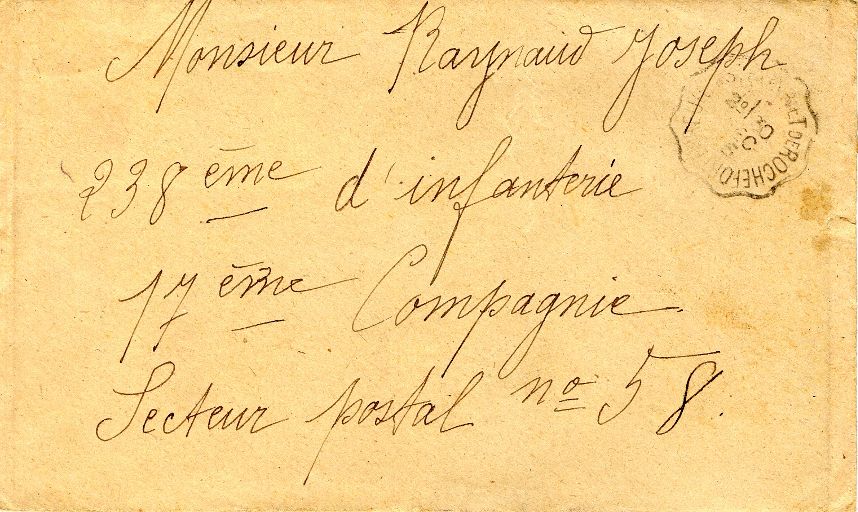 Monsieur Raynaud Joseph
238 ème d'infanterie
17 ème Compagnie
Secteur postal no 58.
DE ROCHEFO